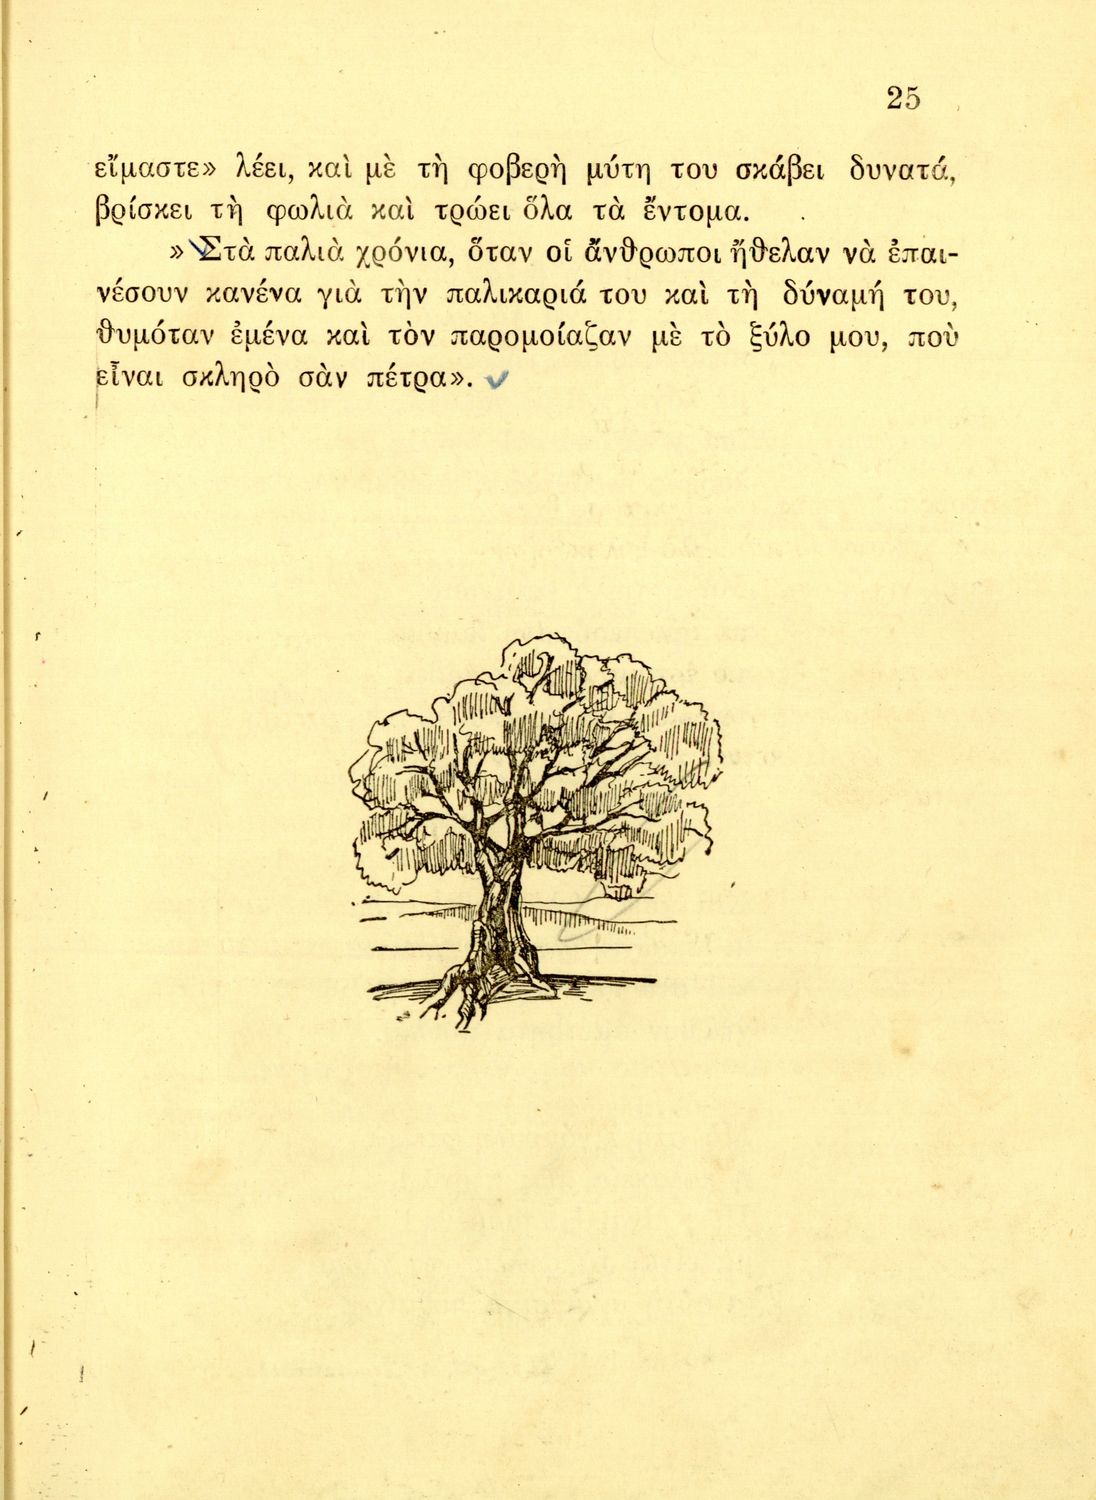 25
εἴμαστε» λέει, καὶ μὲ τὴ φοβερὴ μύτη του σκάβει δυνατά,
βρίσκει τὴ φωλιὰ καὶ τρώει ὅλα τὰ ἔντομα.
» Στὰ παλιὰ χρόνια, ὅταν οἱ ἄνθρωποι ἤθελαν νὰ ἐπαι-
νέσουν κανένα γιὰ τὴν παλικαριά του καὶ τὴ δύναμή του,
θυμόταν ἐμένα καὶ τὸν παρομοίαζαν μὲ τὸ ξύλο μου, ποὺ
εἶναι σκληρὸ σὰν πέτρα».